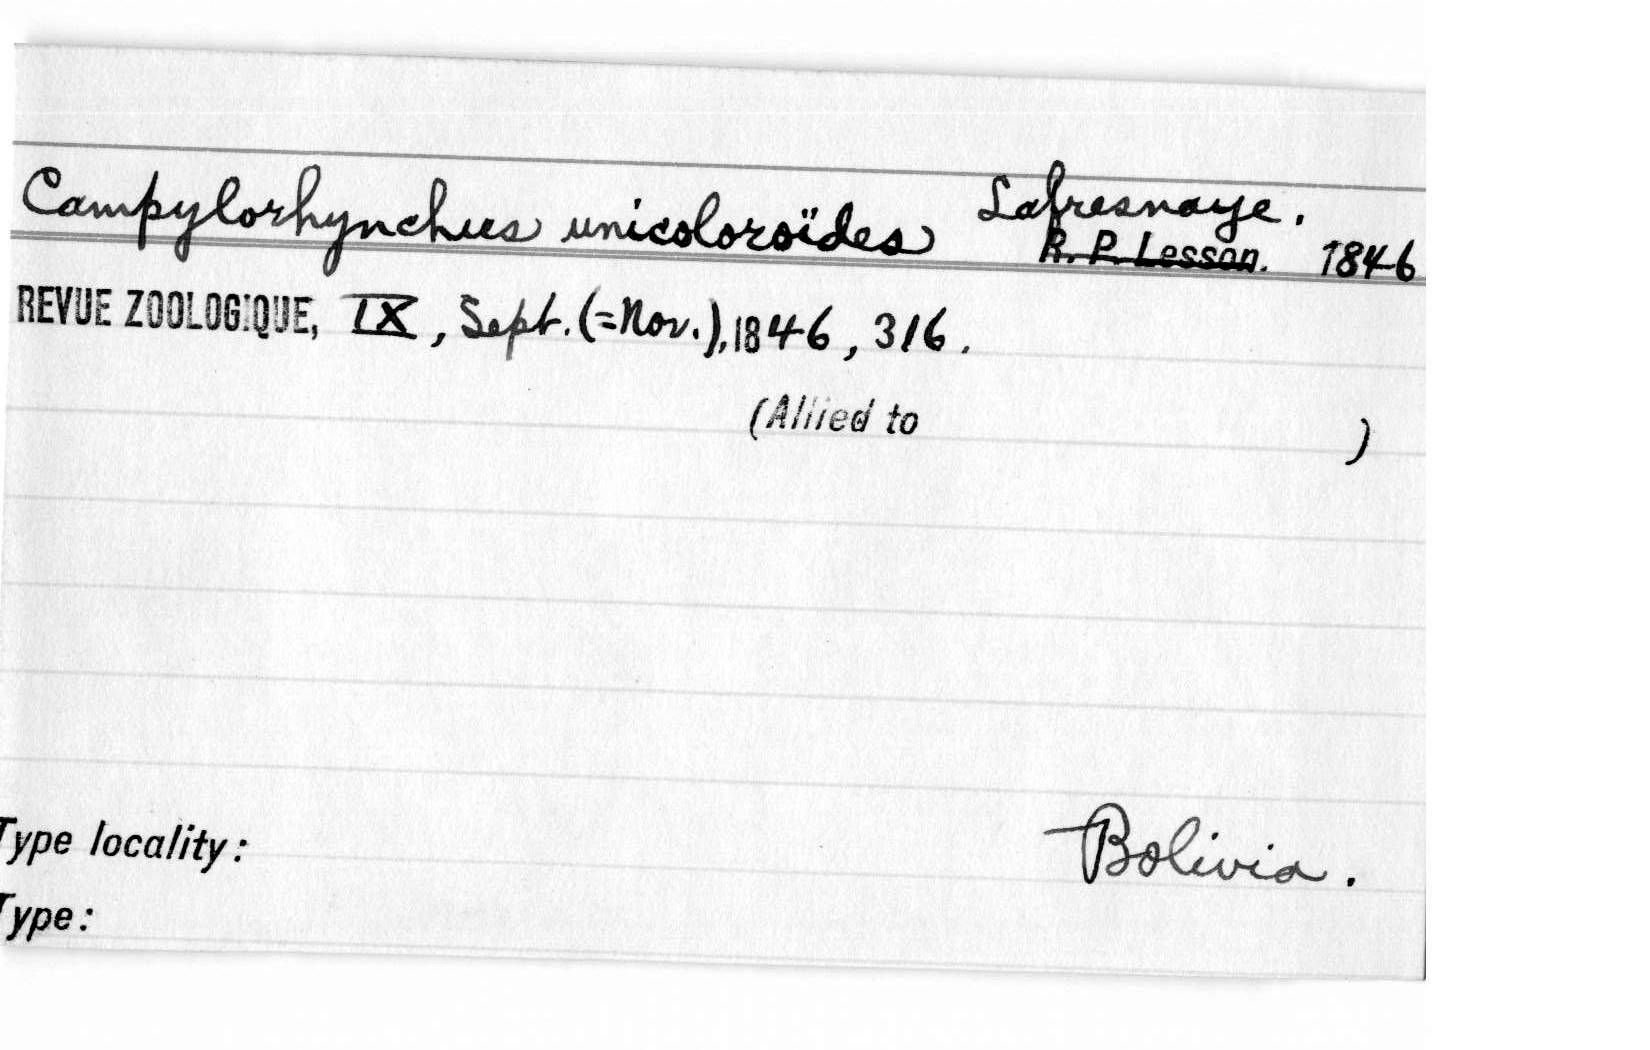 Campylorhynchus unicoloroïdes Lafresnaye.
R. P. Lesson. 1846
REVUE ZOOLOGIQUE, IX, Sept. (=Nov.), 1846, 316.
(Allied to )
Type locality: Bolivia.
Type: